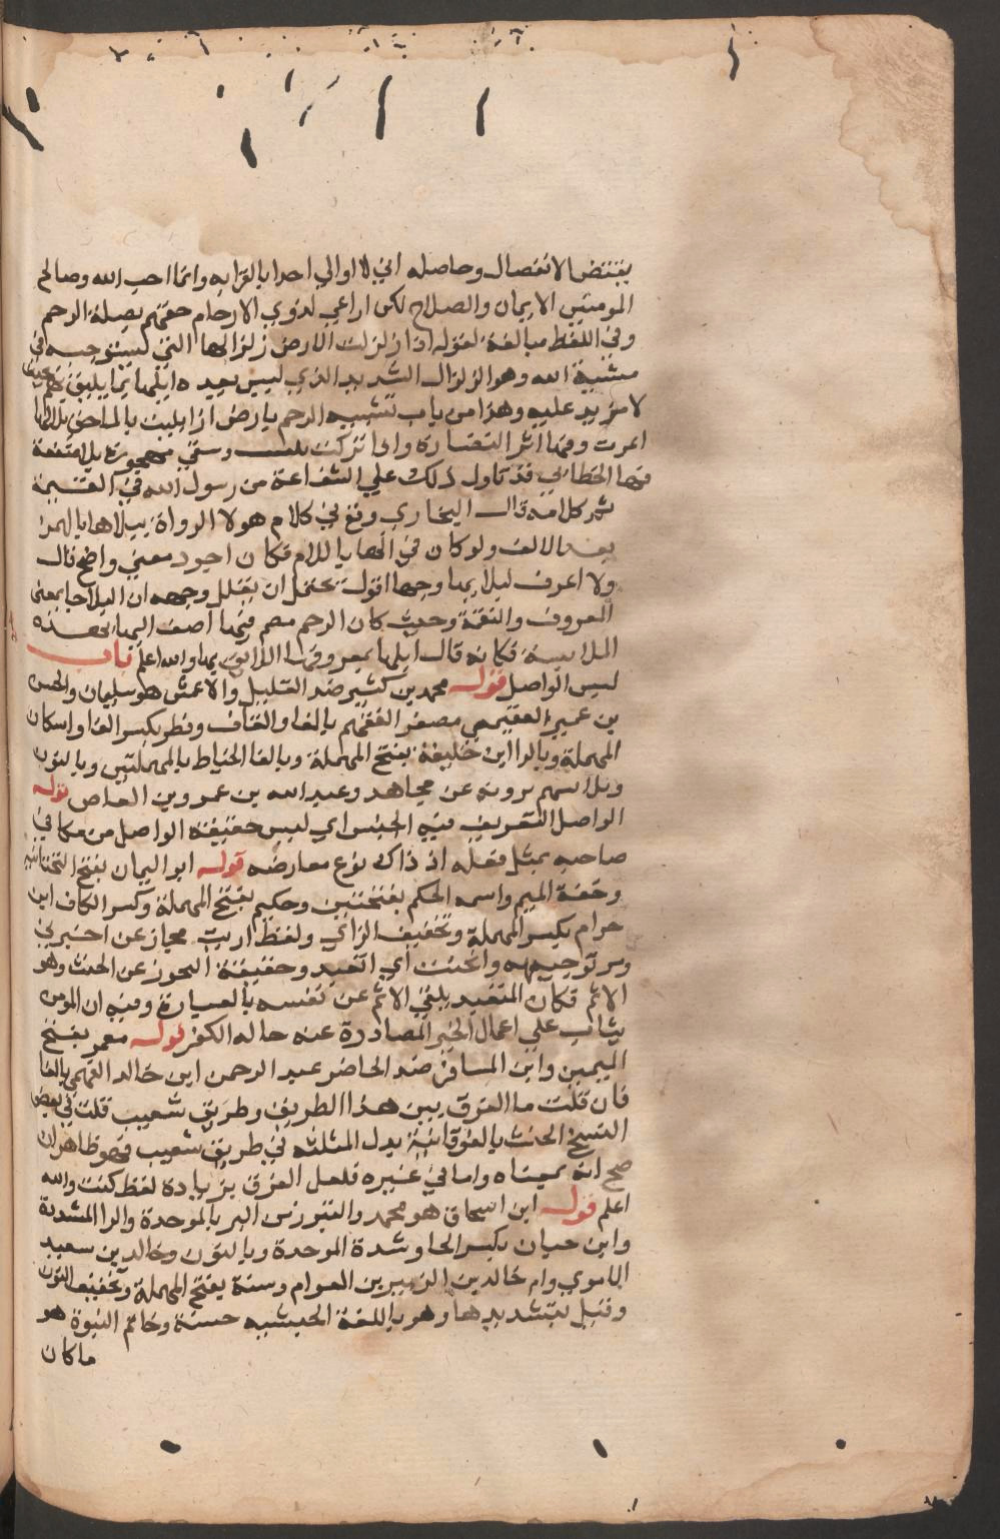 يقتضي الانفصال وحاصله اني لا اوالي احدا بالقرابه وانما احب الله وصالح
المومنين الايمان والصلاح لكن اراعي لذوي الارحام حقهم بصلة الرحم
وفي اللفظ مبالغة لقوله اذا زلزلت الارض زلزالها التي تستوجبه في
مشيئة الله وهو الزلزال الشديد الذي ليس بعده ابلها بما يليق بهم
لا مزيد عليه وهذا من باب تشبيه الرحم بارض اذا بلت بالماحق بلالها
اثمرت وفيها اثر النضارة واذا تركت يبست وبقي مهجورة بلا منفعة
فيها الخطابي قد تاول ذلك علي الشفاعة من رسول الله في القيمة
تم كلامه قال البخاري وقع في كلام هولا الرواة ببلاها بالهمز
بعد الالف ولو كان في الها باللام فكان اجود معني واضح قال
ولا اعرف لبلايها وجها اقول يحتمل ان يقال وجهه ان البلا جا بمعني
المعروف والنعمة وحيث كان الرحم مصرفها اضف اليها بهذه
الملابسة فكانه قال ابلها بمعروفها اللايق بها والله اعلم باب
ليس الواصل قوله محمد بن كثير ضد القليل والاعمش هو سليمان والحسن
بن عمرو الفقيمي مصغر الفقم بالفا والقاف وفطر بكسر الفا واسكان
المهملة وبالرا ابن خليفة بفتح المهملة وبالفا الحناط بالمهملتين وبالنون
وثلاثتهم يروونه عن مجاهد وعبد الله بن عمرو بن العاص قوله
الواصل التعريف فيه الجنس اي ليس حقيقة الواصل من مكافي
صاحبه بمثل فعله اذ ذاك نوع معارضه قوله ابو اليمان بفتح التحتانية
وخفة الميم واسمه الحكم بفتحتين وحكيم بفتح المهملة وكسر الكاف ابن
حزام بكسر المهملة وتخفيف الزاي ولفظ ارايت مجاز عن اخبرني
ومر توجيهه واتحنث اي اتعبد وحقيقة التحرز عن الحنث وهو
الاثم فكان المتعبد يلقي الاثم عن نفسه بالعبارة وفيه ان المومن
يثاب علي اعمال الخير الصادرة عنه حاله الكفر قوله معمر بفتح
الميمين وابن المسافر ضد الحاضر عبد الرحمن ابن خالد الفهمي بالفا
فان قلت ما الفرق بين هذا الطريق وطريق شعيب قلت في بعض
النسخ الحنت بالفوقانية بدل المثلثة في طريق شعيب فهو ظاهر ان
صح انه بمعناه واما في غيره فلعل الفرق بزيادة لفظ كنت والله
اعلم قوله ابن اسحاق هو محمد والتبرز من البر بالموحدة والرا المشددة
وابن حبان بكسر الحا وشدة الموحدة وبالنون وخالد بن سعيد
الاموي وام خالد بن الزبير بن العوام وسنة بفتح المهملة وتخفيف النون
وقيل بتشديدها وهو باللغة الحبشيه حسنة وخاتم النبوة هو
ماكان